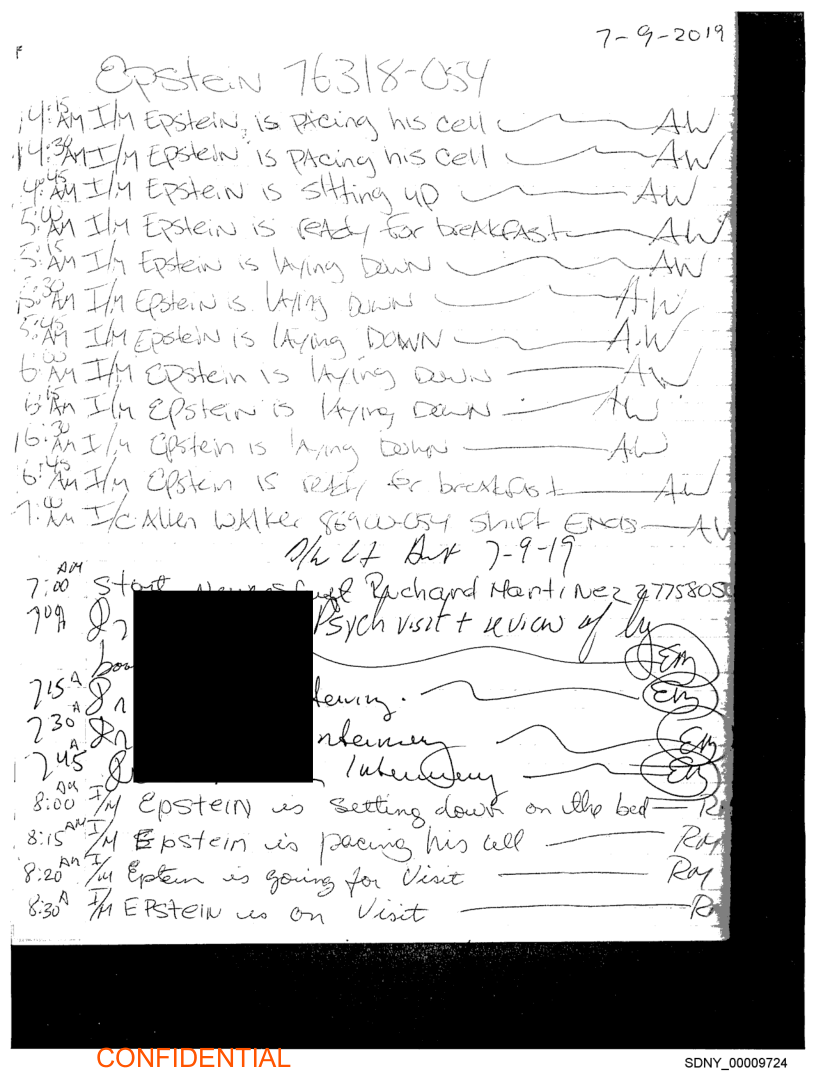 7-9-2019
Epstein 76318-054
4:15 AM I/M Epstein is pacing his cell AW
4:30 AM I/M Epstein is pacing his cell AW
4:45 AM I/M Epstein is sitting up AW
5:00 AM I/M Epstein is ready for breakfast AW
5:15 AM I/M Epstein is laying down AW
5:30 AM I/M Epstein is laying down AW
5:45 AM I/M Epstein is laying DOWN A.W
6:00 AM I/M Epstein is laying down AW
6:15 AM I/M Epstein is laying down AW
6:30 AM I/M Epstein is laying down AW
6:45 AM I/M Epstein is ready for breakfast AW
7:00 AM I/C Allen Walker 86900-054 Shift Ends AW
7-9-19
7:00 AM Start Richard Martinez
709 A Dr Psych visit + review of
EM
715 A Dr EM
730 A Dr EM
745 A EM
8:00 AM I/M Epstein is setting down on the bed R
8:15 AM I/M Epstein is pacing his cell Ray
8:20 AM I/M Eptein is going for Visit Ray
8:30 A I/M EPSTEIN is on Visit R
CONFIDENTIAL
SDNY_00009724